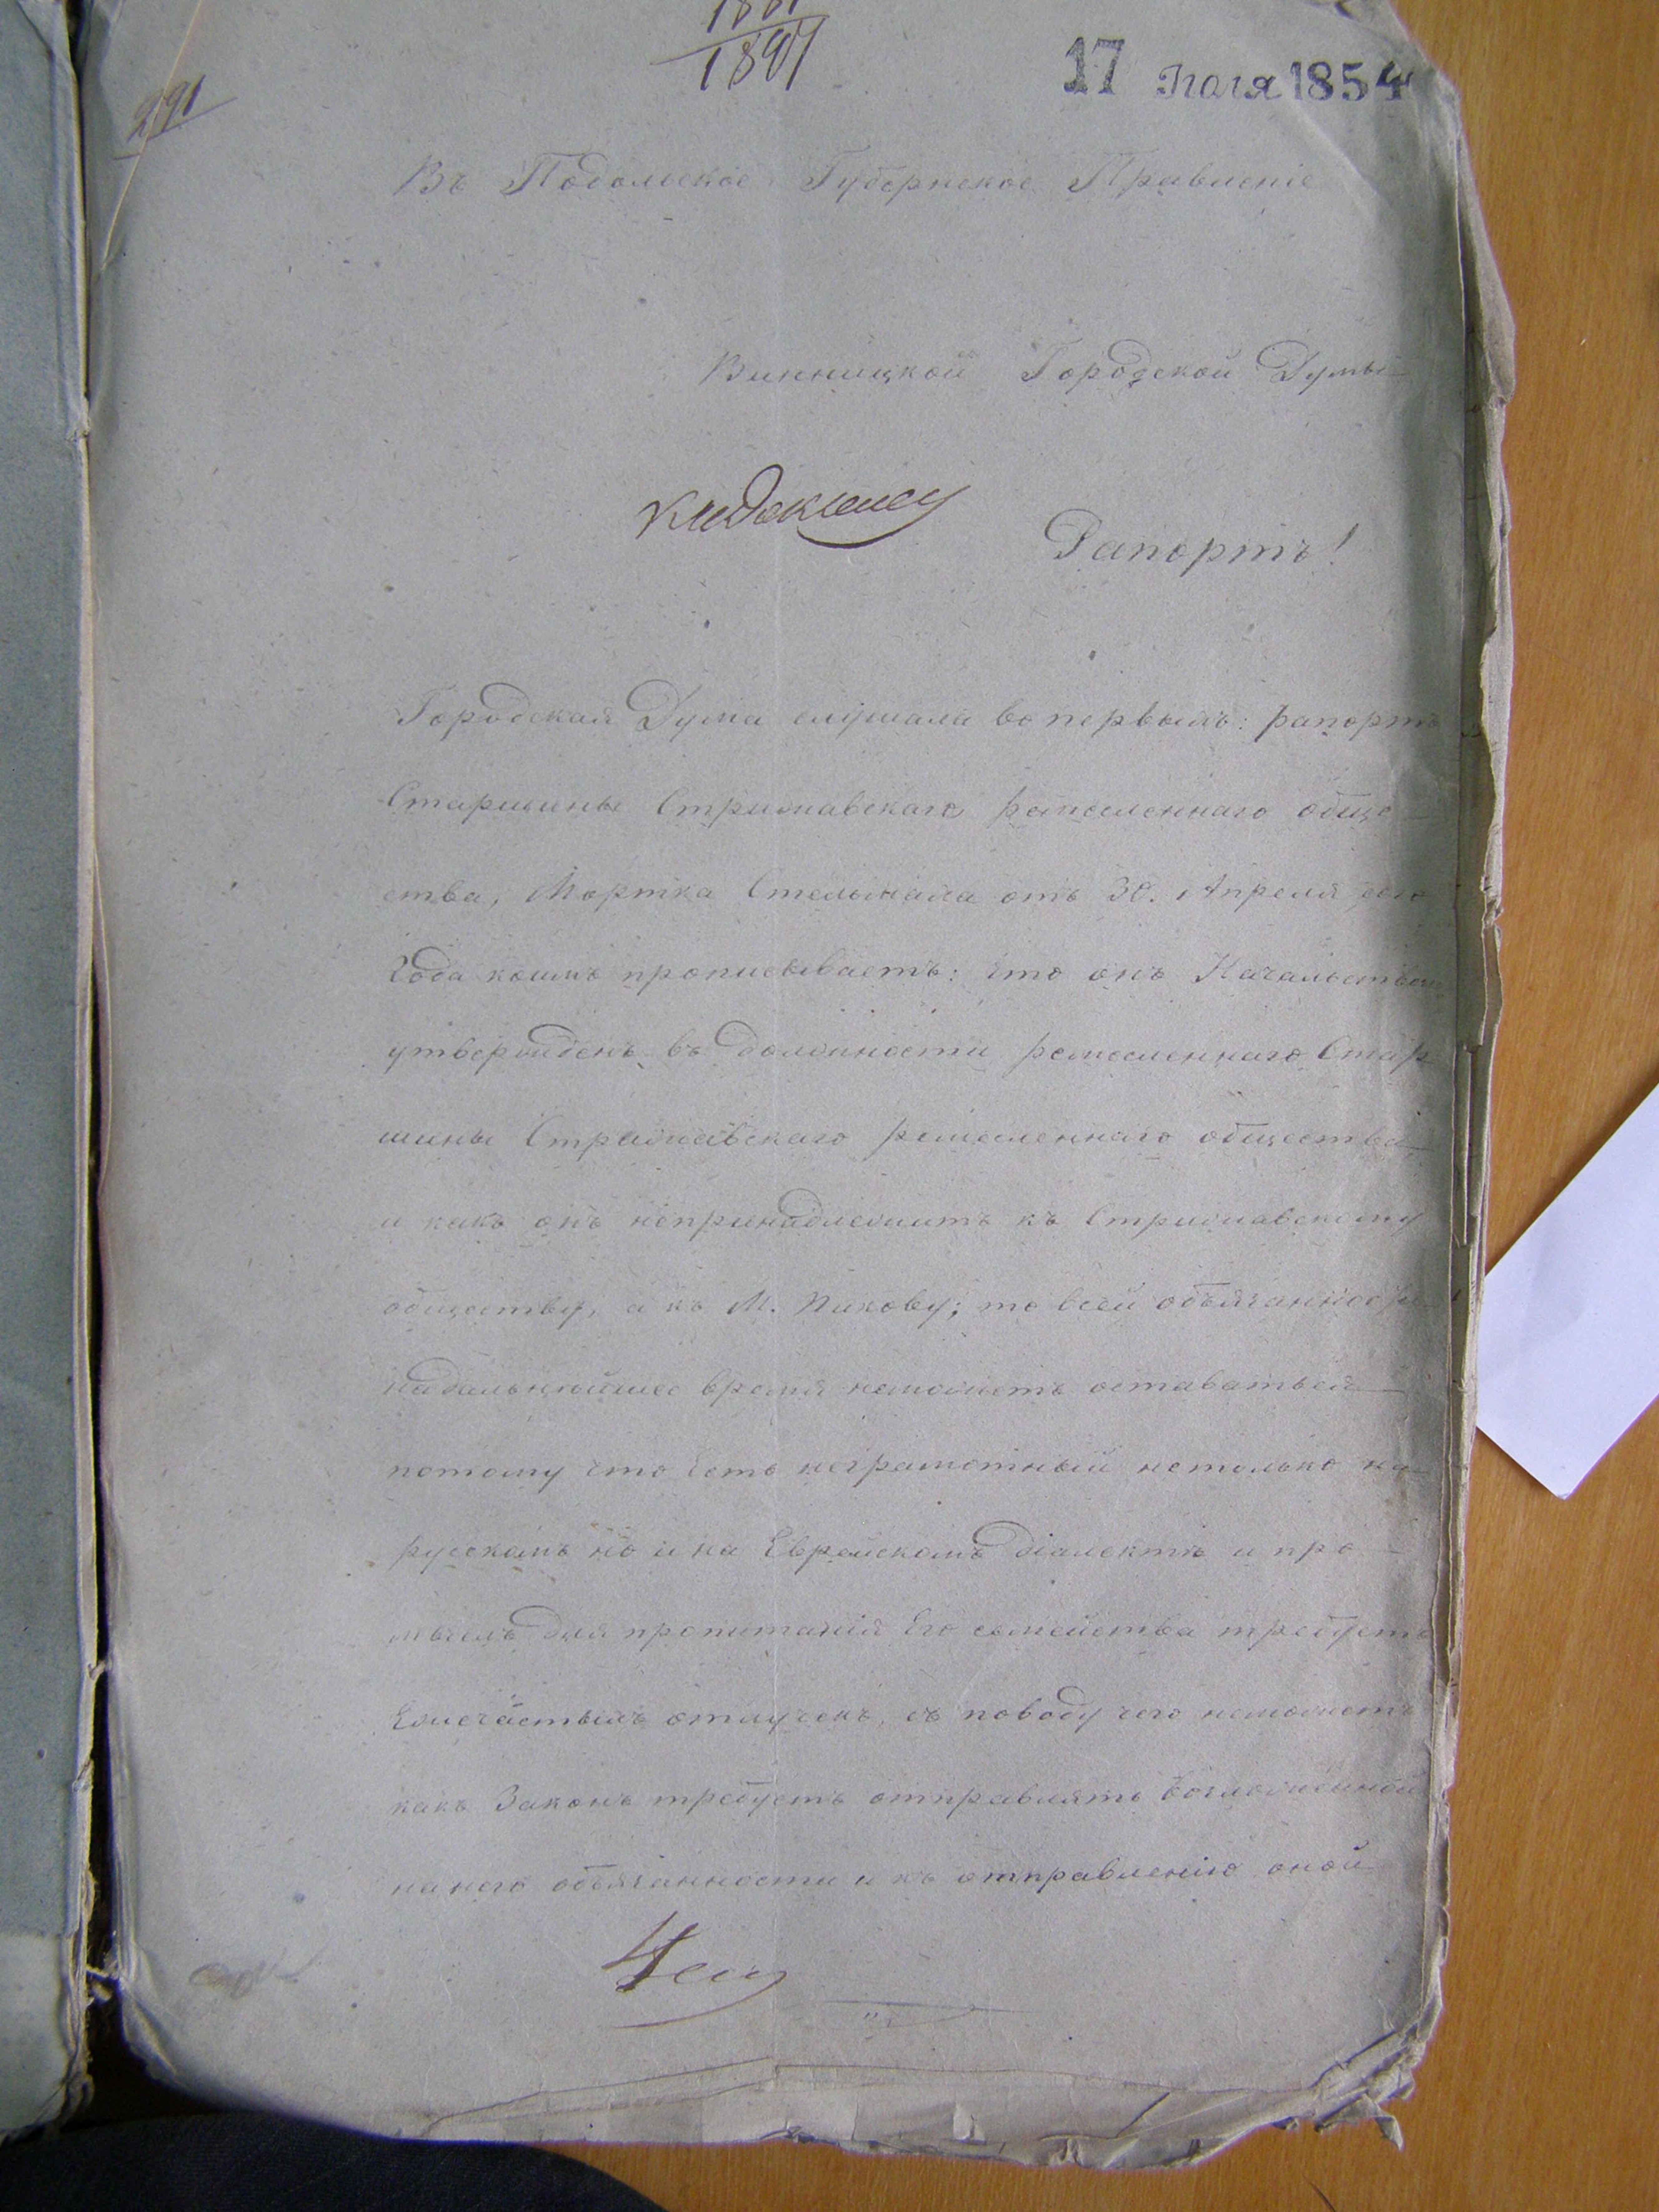 1881
1897
17 Юля 1854
291
Въ Подольское Губернское Правленіе
Винницкой Городской Думы
Рапортъ!
Городская Дума слушала во первыхъ: рапортъ
Старшины Стрижавскаго ремесленнаго обще-
ства, Мортка Стельмаха отъ 30. Апреля сего
Года коимъ прописываетъ: что онъ Начальствомъ
утвержденъ въ должности ремесленнаго Стар
шины Стрижавскаго ремесленнаго общества
и какъ онъ непринадлежитъ къ Стрижавскому
обществу, а къ М. Пикову; то всей объязанности
надальнюйшее время неможетъ оставаться
потому что есть неграмотный нетолько на
русскамъ но и на Еврейскомъ діалектѣ и про-
мыслъ для пропитанія Его семейства требуетъ
Емечастыхъ отлучекъ, съ поводу чего неможетъ
какъ Законъ требуетъ отправлять возложенной
на него обязанности и къ отправленію оной